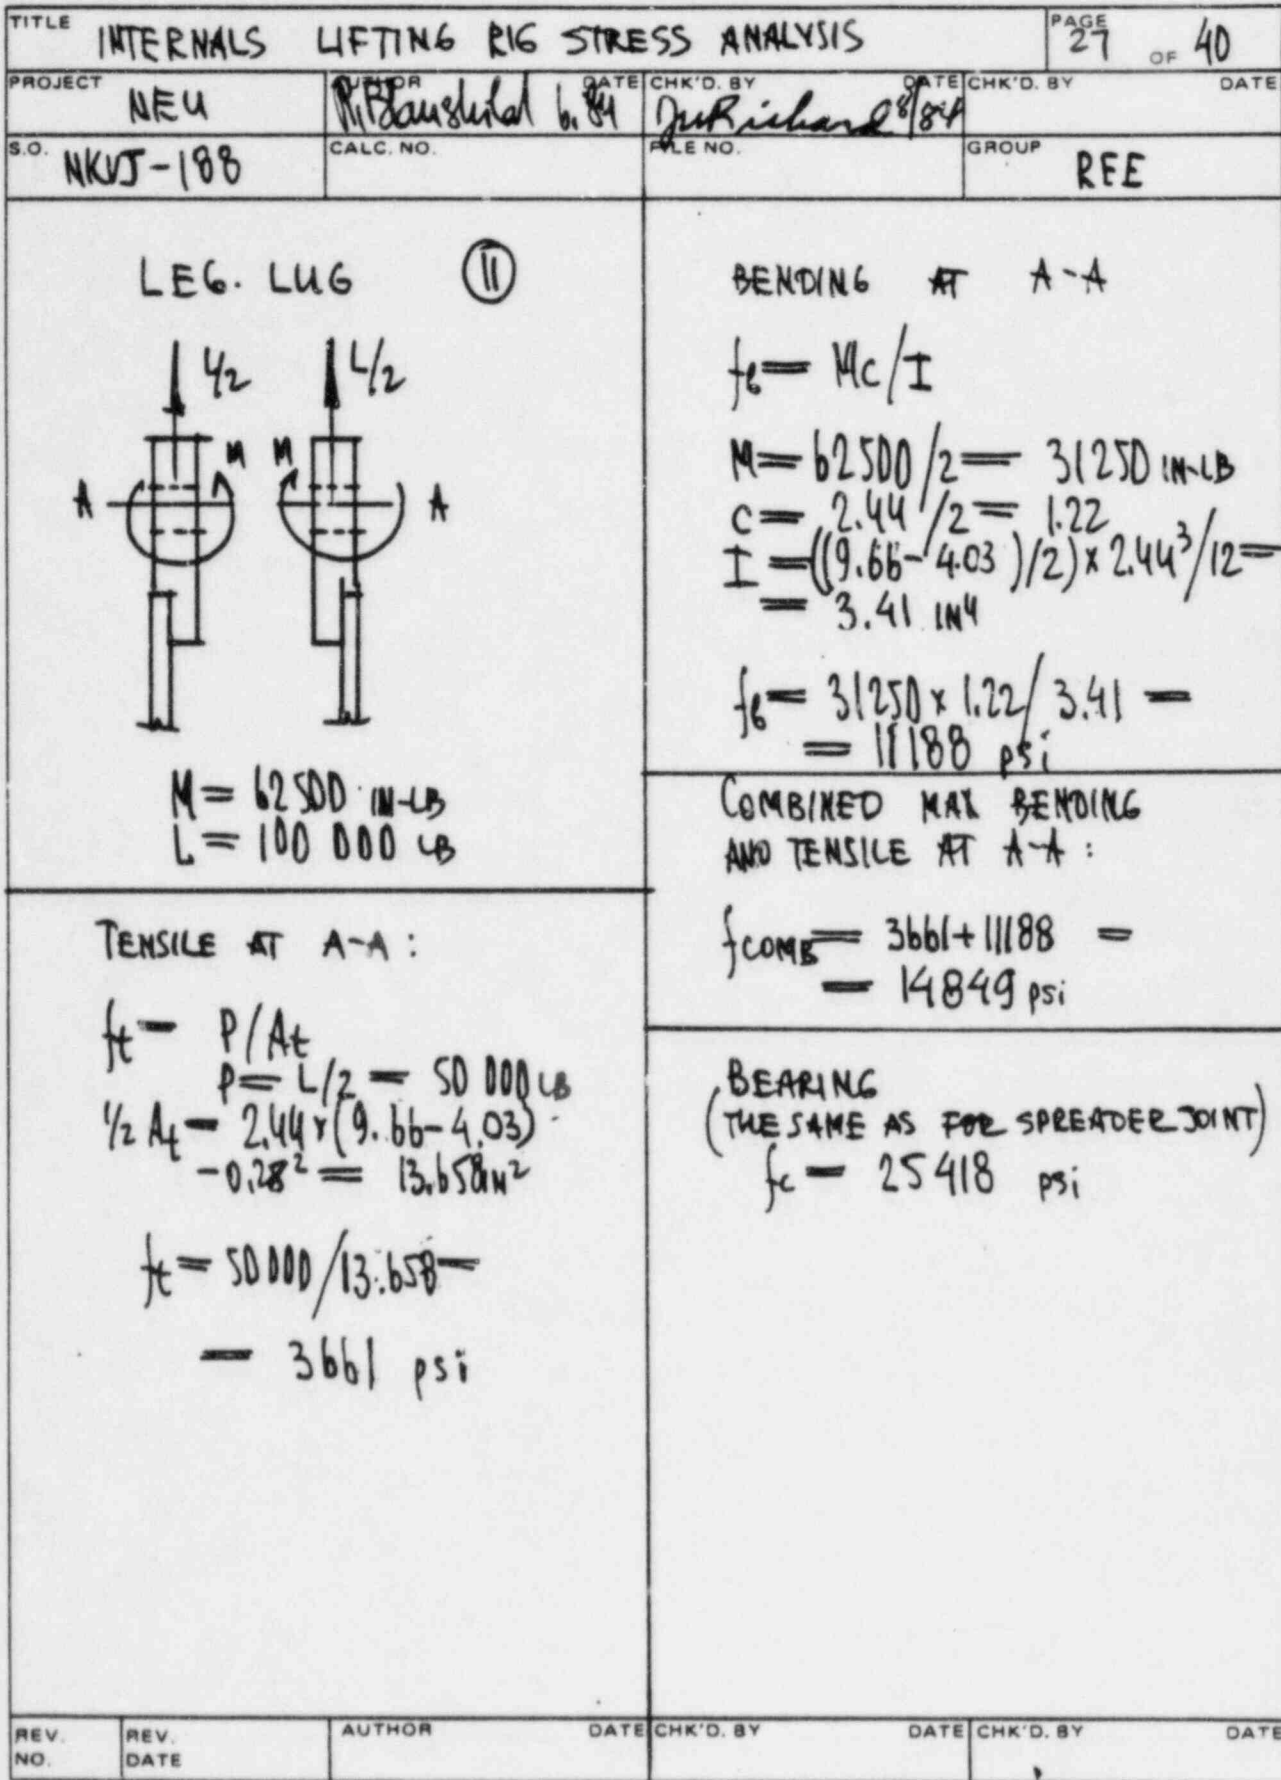 TITLE INTERNALS LIFTING RIG STRESS ANALYSIS
PAGE 27 OF 40
PROJECT NEU
AUTHOR DATE 6.84
CHK'D. BY DATE 8/84
CHK'D. BY DATE
S.O. NKVJ-188
CALC. NO.
FILE NO.
GROUP REE
LEG. LUG 11
L/2 L/2
M M
A A
M = 62500 IN-LB
L = 100 000 LB
TENSILE AT A-A :
ft = P/At
P = L/2 = 50 000 LB
1/2 At = 2.44 x (9.66-4.03)
-0.28² = 13.658 IN²
ft = 50000/13.658 =
= 3661 psi
BENDING AT A-A
fb = Mc/I
M = 62500/2 = 31250 IN-LB
C = 2.44/2 = 1.22
I = ((9.66-4.03)/2) x 2.44³/12 =
= 3.41 IN⁴
fb = 31250 x 1.22/3.41 =
= 11188 psi
COMBINED MAX BENDING
AND TENSILE AT A-A :
fCOMB = 3661+11188 =
= 14849 psi
BEARING
(THE SAME AS FOR SPREADER JOINT)
fc = 25418 psi
REV. NO.
REV. DATE
AUTHOR DATE
CHK'D. BY DATE
CHK'D. BY DATE